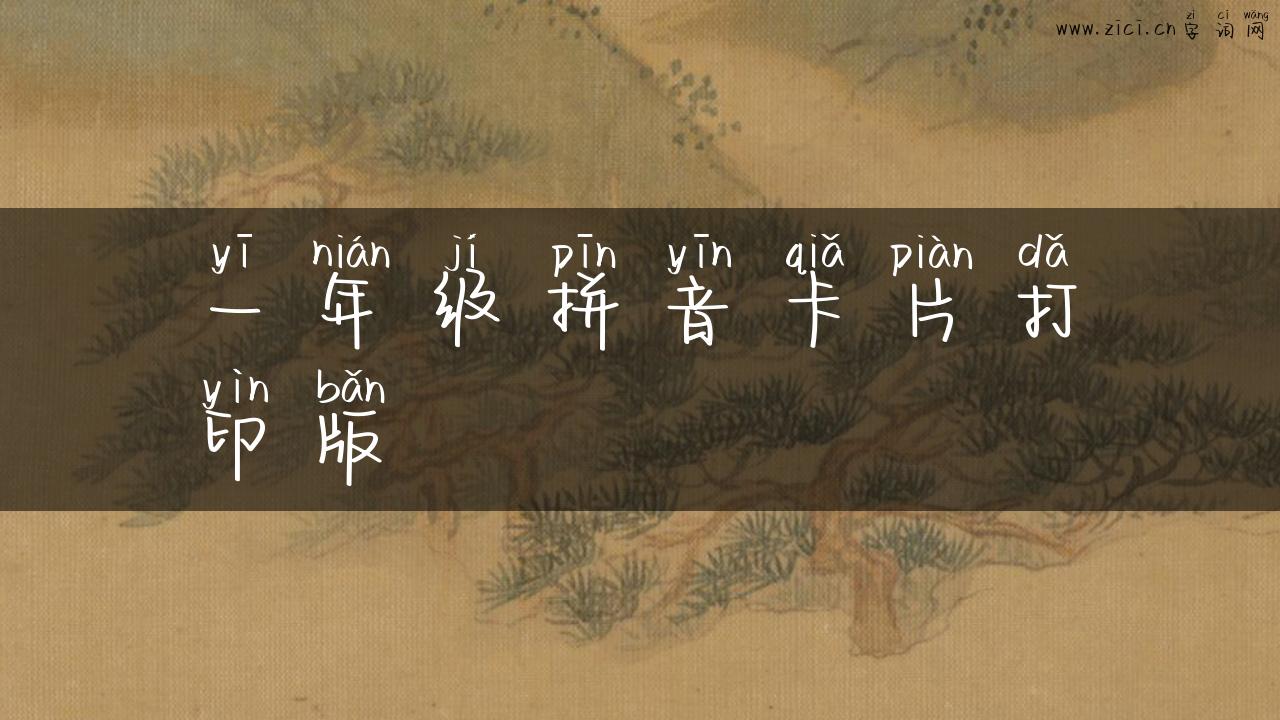 zì cí wǎng
www.zici.cn 字词网
yī nián jí pīn yīn qiǎ piàn dǎ
一年级拼音卡片打
yìn bǎn
印版